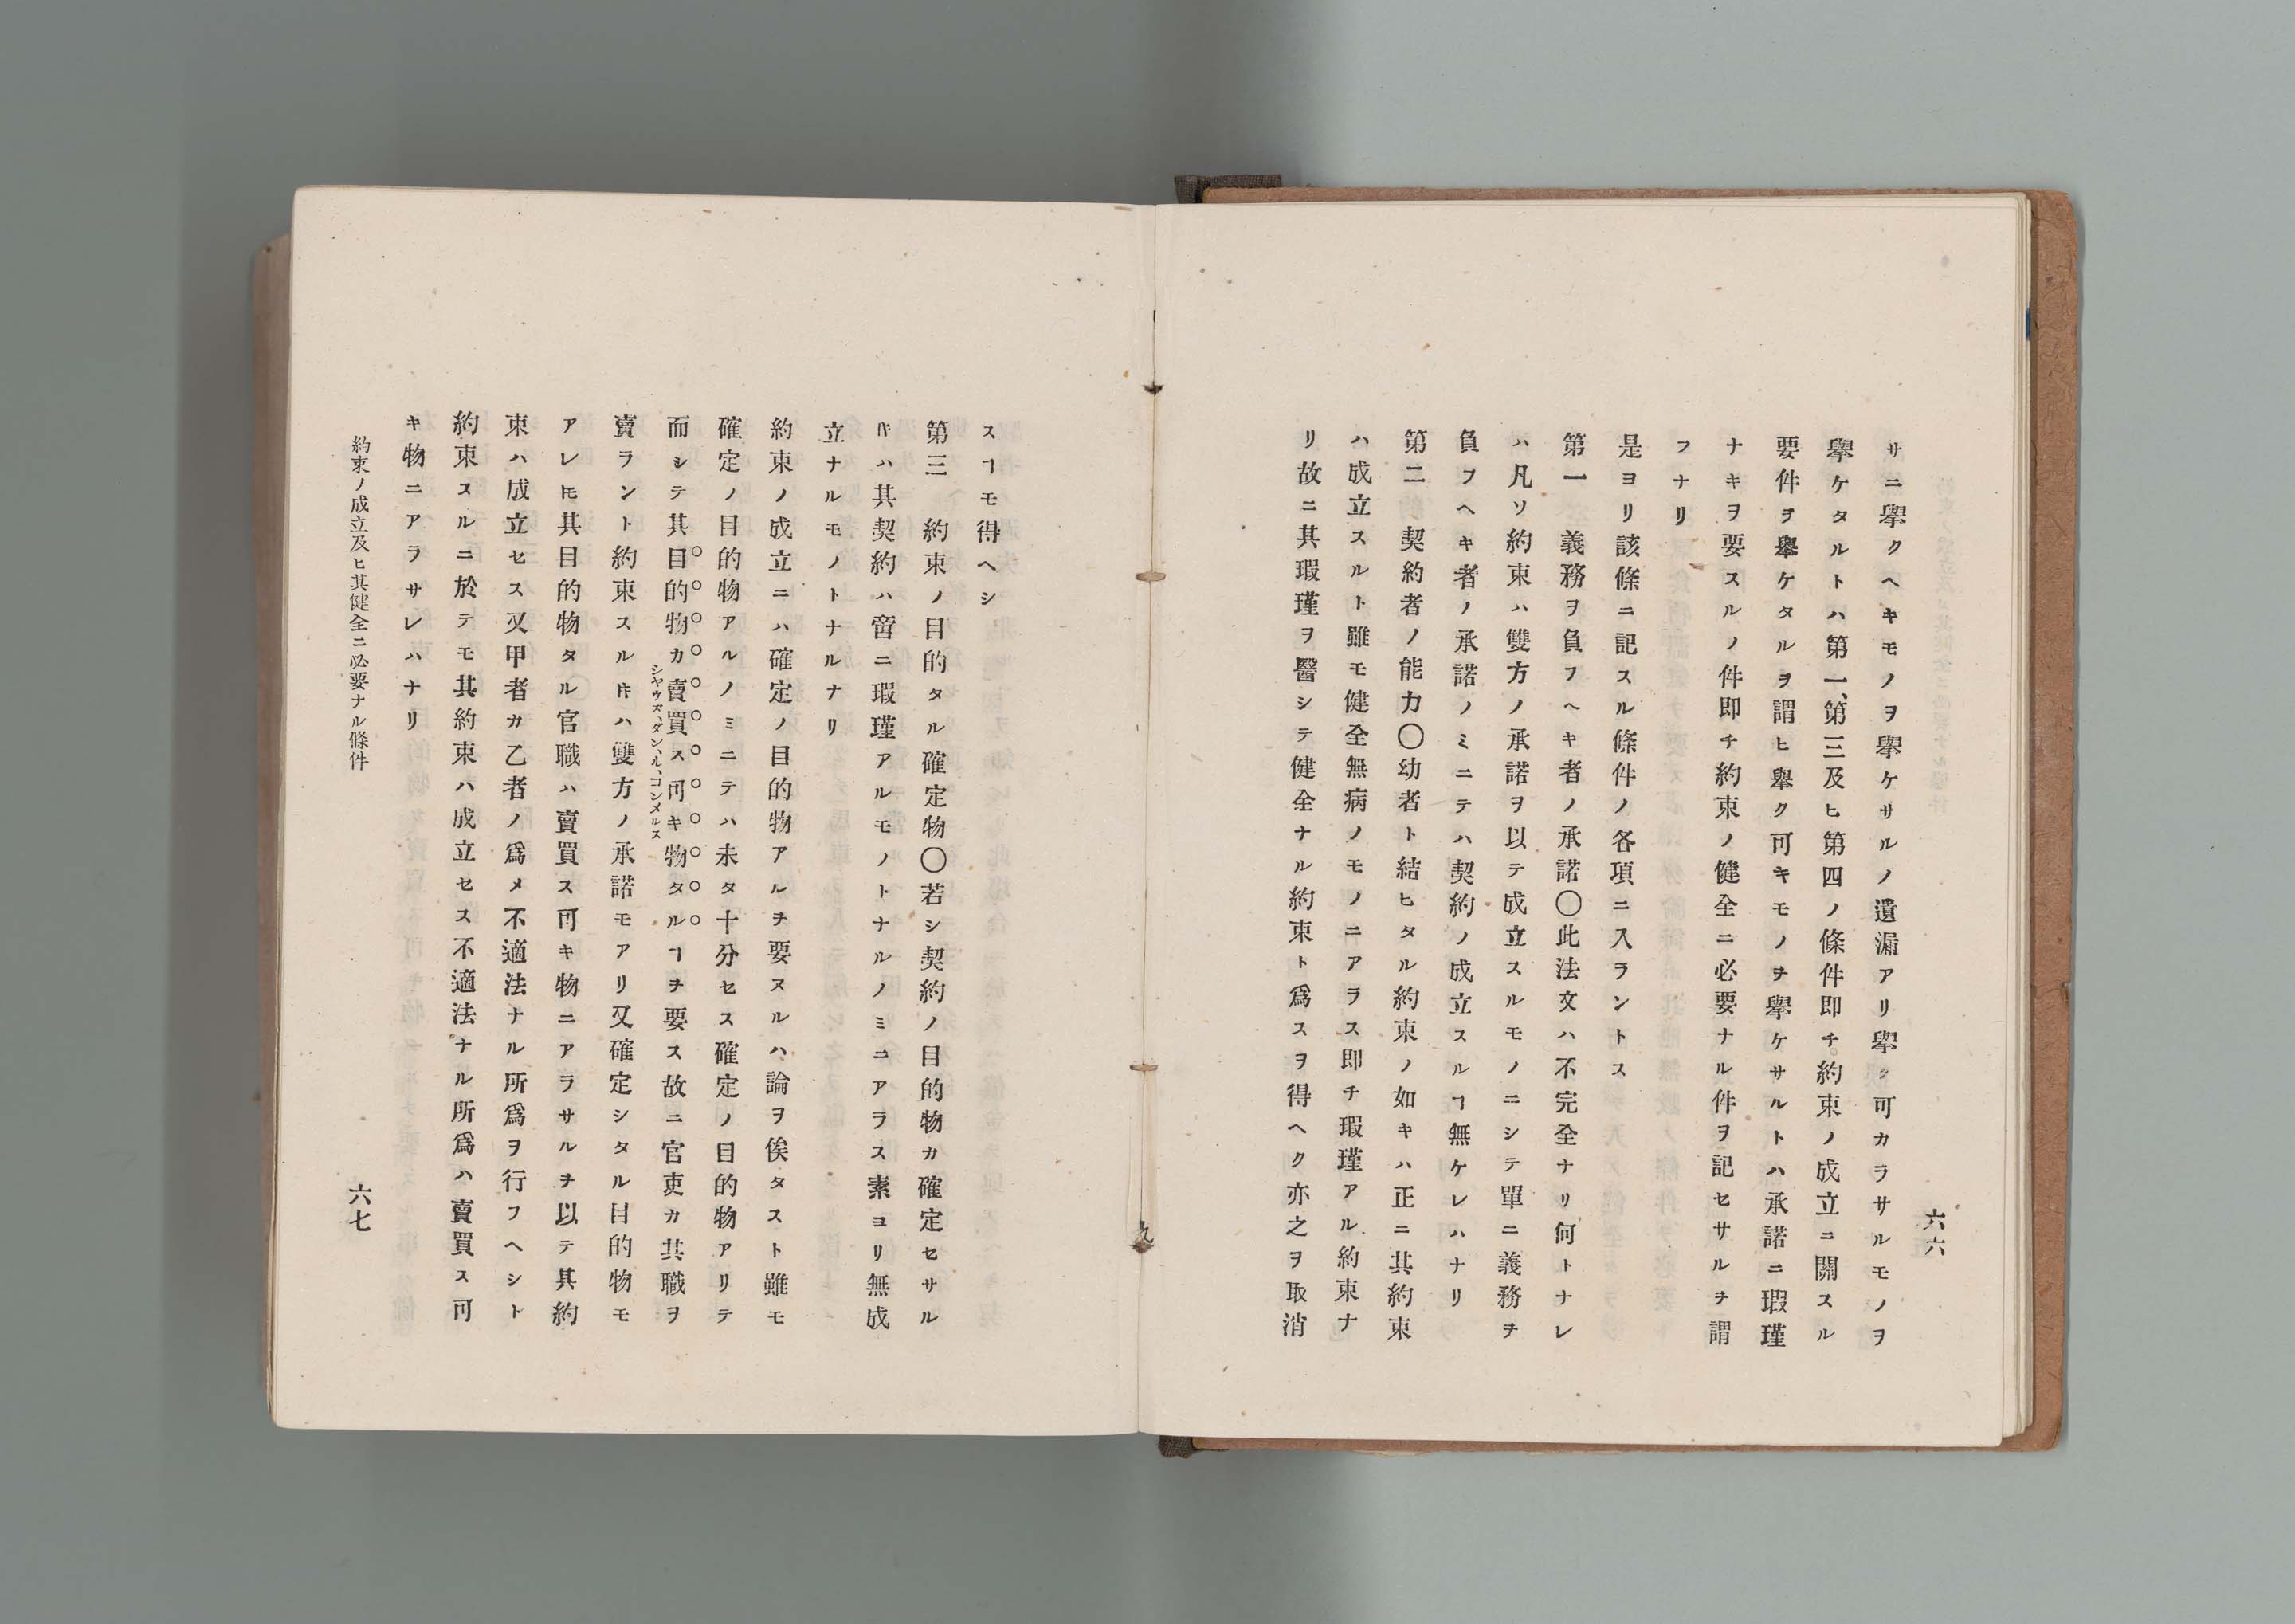 六六
サニ擧クヘキモノヲ擧ケサルノ遺漏アリ擧ク可カラサルモノヲ
擧ケタルトハ第一、第三及ヒ第四ノ條件即チ約束ノ成立ニ關スル
要件ヲ擧ケタルヲ謂ヒ擧ク可キモノヲ擧ケサルトハ承諾ニ瑕瑾
ナキヲ要スルノ件即チ約束ノ健全ニ必要ナル件ヲ記セサルヲ謂
フナリ
是ヨリ該條ニ記スル條件ノ各項ニ入ラントス
第一　義務ヲ負フヘキ者ノ承諾〇此法文ハ不完全ナリ何トナレ
ハ凡ソ約束ハ雙方ノ承諾ヲ以テ成立スルモノニシテ單ニ義務ヲ
負フヘキ者ノ承諾ノミニテハ契約ノ成立スルヿ無ケレハナリ
第二　契約者ノ能力〇幼者ト結ヒタル約束ノ如キハ正ニ其約束
ハ成立スルト雖モ健全無病ノモノニアラス即チ瑕瑾アル約束ナ
リ故ニ其瑕瑾ヲ醫シテ健全ナル約束ト爲スヲ得ヘク亦之ヲ取消
スヿモ得ヘシ
第三　約束ノ目的タル確定物〇若シ契約ノ目的物カ確定セサル
𪜈ハ其契約ハ啻ニ瑕瑾アルモノトナルノミニアラス素ヨリ無成
立ナルモノトナルナリ
約束ノ成立ニハ確定ノ目的物アルヲ要スルハ論ヲ俟タスト雖モ
確定ノ目的物アルノミニテハ未タ十分セス確定ノ目的物アリテ
而シテ其目的物カ賣買ス可キ物タルヿヲ要ス故ニ官吏カ其職ヲ
シヤウズ、ダン、ル、コンメルス
賣ラント約束スル𪜈ハ雙方ノ承諾モアリ又確定シタル目的物モ
アレ𪜈其目的物タル官職ハ賣買ス可キ物ニアラサルヲ以テ其約
束ハ成立セス又甲者カ乙者ノ爲メ不適法ナル所爲ヲ行フヘシト
約束スルニ於テモ其約束ハ成立セス不適法ナル所爲ハ賣買ス可
キ物ニアラサレハナリ
約束ノ成立及ヒ其健全ニ必要ナル條件
六七